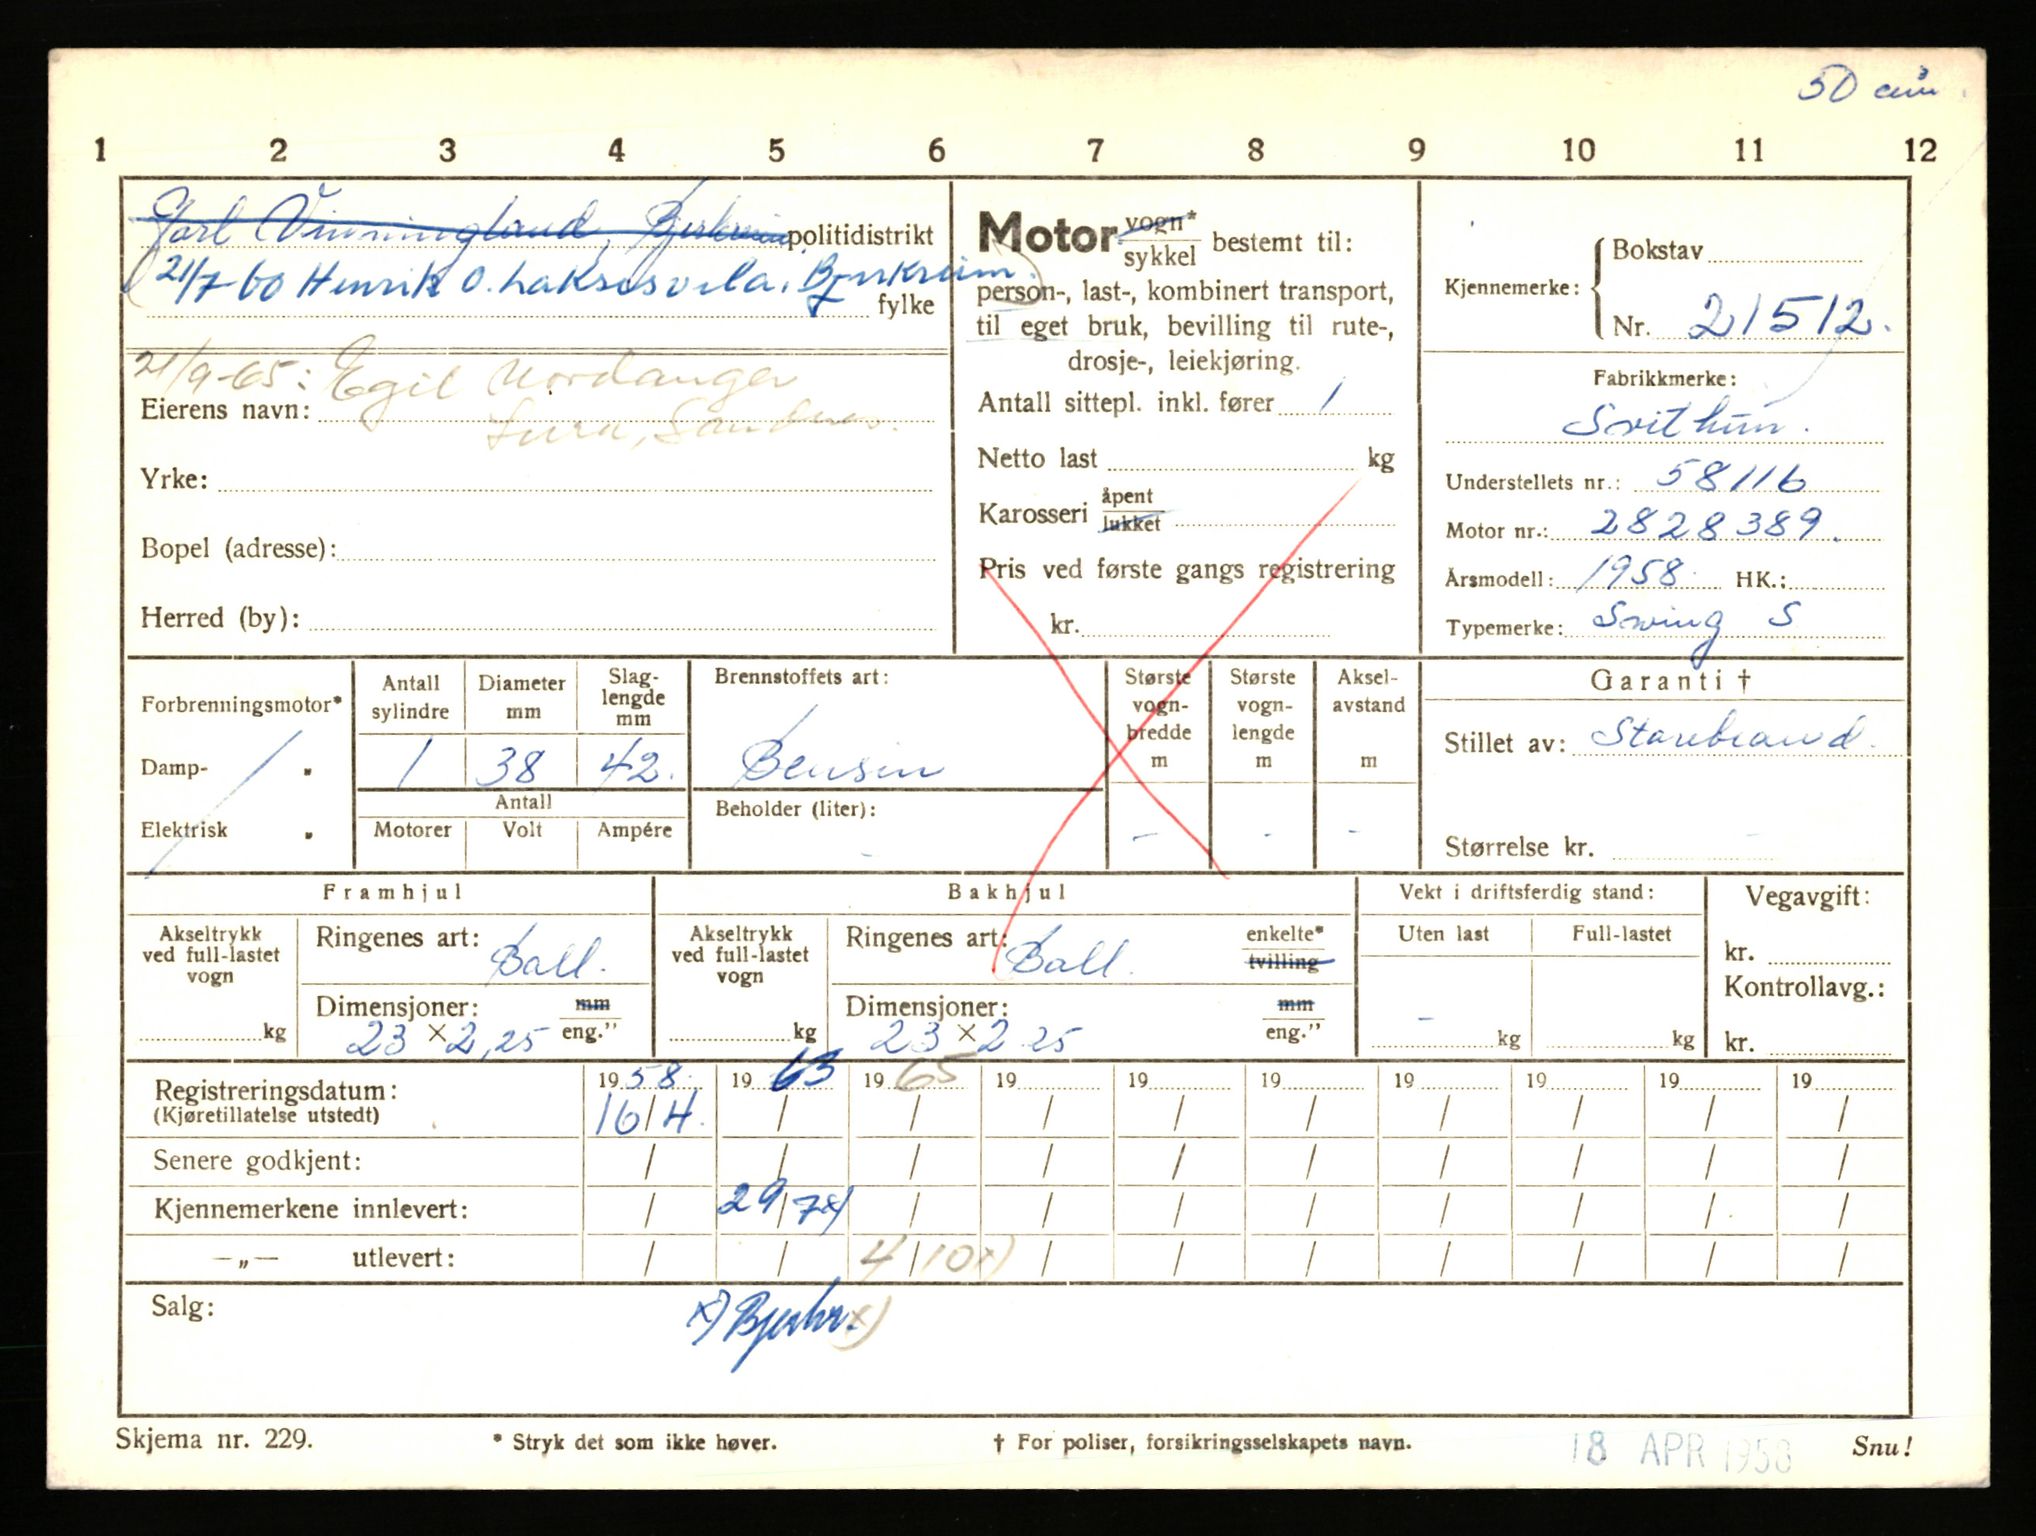 50 cm³
1 2 3 4 5 6 7 8 9 10 11 12
Jarl Vinningland, Bjerkreim politidistrikt
21/7-60 Henrik O. Laksesvela, Bjerkreim.
fylke
21/9-65: Egil Nordanger
Eierens navn: Lura, Sandnes.
Yrke:
Bopel (adresse):
Herred (by):
Motor vogn* / sykkel bestemt til:
person-, last-, kombinert transport,
til eget bruk, bevilling til rute-,
drosje-, leiekjøring.
Antall sittepl. inkl. fører 1
Netto last kg
Karosseri åpent / lukket
Pris ved første gangs registrering
kr.
Kjennemerke: Bokstav
Nr. 21512.
Fabrikkmerke:
Svithun.
Understellets nr.: 58116
Motor nr.: 2828389.
Årsmodell: 1958 HK.:
Typemerke: Swing S
Forbrenningsmotor*
Damp- "
Elektrisk "
Antall sylindre Diameter mm Slag-lengde mm
1 38 42.
Antall
Motorer Volt Ampére
Brennstoffets art:
Bensin
Beholder (liter): -
Største vogn-bredde m -
Største vogn-lengde m -
Aksel-avstand m -
Garanti †
Stillet av: Storebrand.
Størrelse kr.
Framhjul
Akseltrykk ved full-lastet vogn
kg
Ringenes art: Ball.
Dimensjoner: mm / eng."
23 x 2,25
Bakhjul
Akseltrykk ved full-lastet vogn
kg
Ringenes art: Ball. enkelte* / tvilling
Dimensjoner: mm / eng."
23 x 2.25
Vekt i driftsferdig stand:
Uten last Full-lastet
- kg kg
Vegavgift:
kr.
Kontrollavg.:
kr.
Registreringsdatum: 1958. 1963 1965 19 19 19 19 19 19 19
(Kjøretillatelse utstedt) 16/4. / / / / / / / / /
Senere godkjent: / / / / / / / / / /
Kjennemerkene innlevert: / 29/7 x) / / / / / / / /
—„— utlevert: / / 4/10 x) / / / / / / /
Salg: x) Bjerkr. x)
Skjema nr. 229. * Stryk det som ikke høver. † For poliser, forsikringsselskapets navn. 18 APR 1958 Snu!